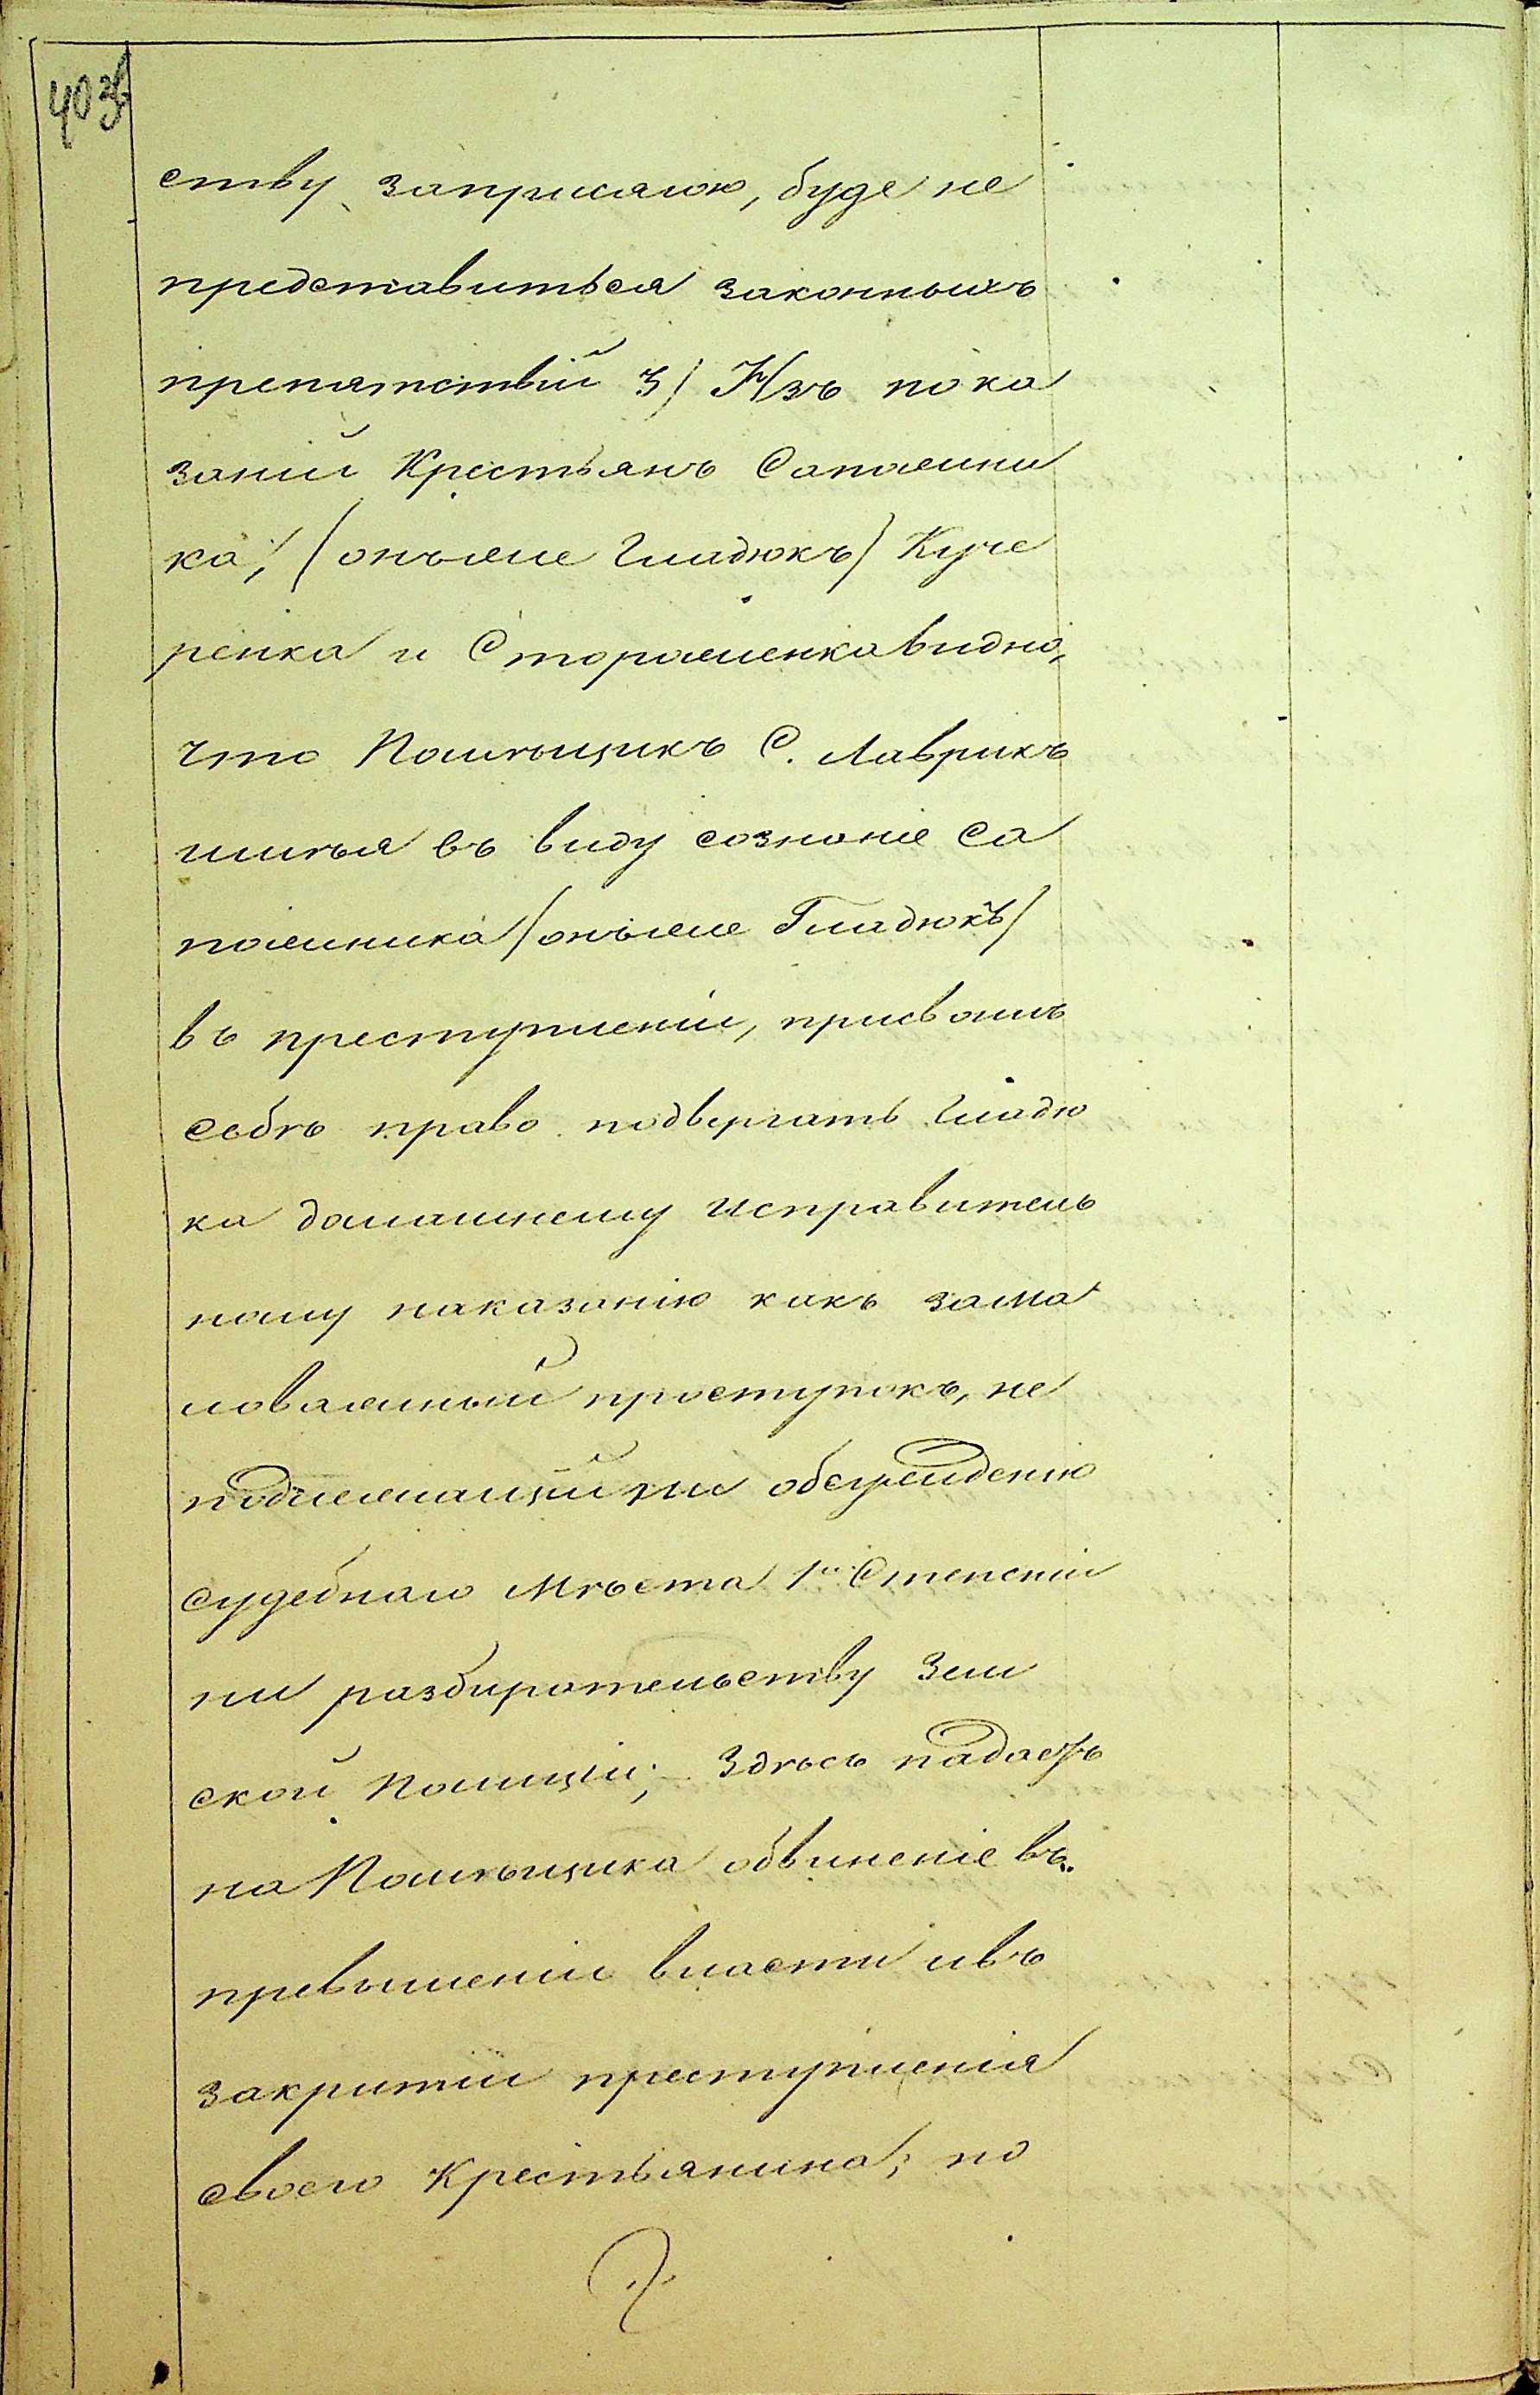 403
ству заприсягою, буде не
представиться законныхъ
препятствій 3/ Изъ пока
заній Крестьянъ Сапожни
ка, (онъже Гладюкъ) Куче
ренка и Стороженка видно,
что Помѣщикъ С. Лаврикъ
имѣя въ виду сознаніе Са
пожника (онъже Гладюкъ)
въ преступленіи, присвоилъ
себѣ право подвергать Гладю
ка домашнему исправитель
ному наказанію какъ зама
ловажный проступокъ, не
подлежащій ни обсужденію
судебнаго Мѣста 1й Степеніи
ни разбирательству Зем
ской Полиціи; Здѣсь падаетъ
на Помѣщика обвиненіе въ
превышеніи власти ивъ
закрытіи преступленія
своего Крестьянина; по